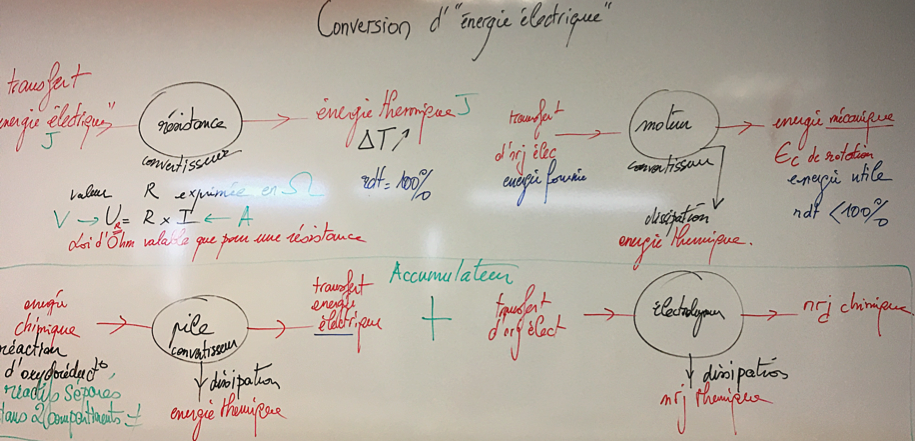 Conversion d'"énergie électrique"
transfert
énergie électrique"
J
résistance
convertisseur
énergie thermique J
ΔT ↗
rdt = 100%
valeur R exprimée en Ω
V → U_R = R × I ← A
Loi d'Ohm valable que pour une résistance
transfert
d'nrj élec
énergie fournie
moteur
convertisseur
énergie mécanique
Ec de rotation
énergie utile
rdt < 100%
dissipation
énergie thermique.
Accumulateur
énergie
chimique
réaction
d'oxydoréduct°
réactifs séparés
dans 2 compartiments
pile
convertisseur
transfert
énergie
électrique
dissipation
énergie thermique
+
transfert
d'nrj élect
électrolyseur
nrj chimique
dissipation
nrj thermique